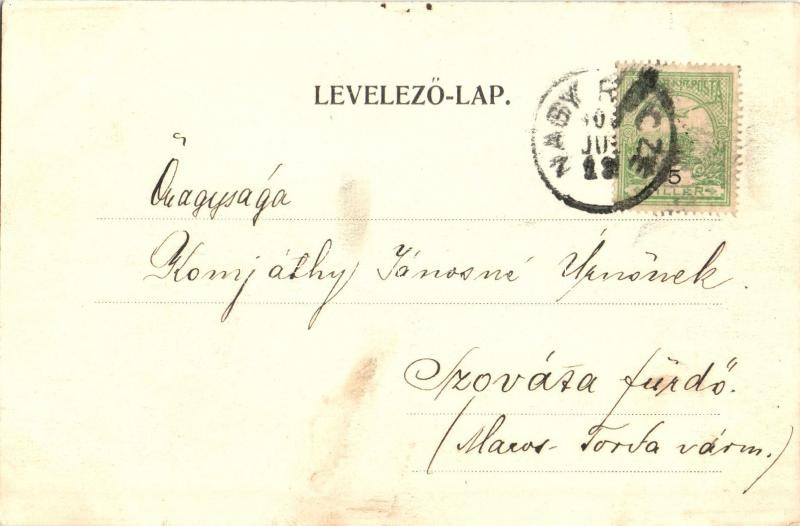 LEVELEZŐ-LAP.
NAGY
JUL
5
FILLER
Őnagysága
Komjáthy Jánosné Úrnőnek.
Szováta fürdő.
(Maros-Torda várm.)